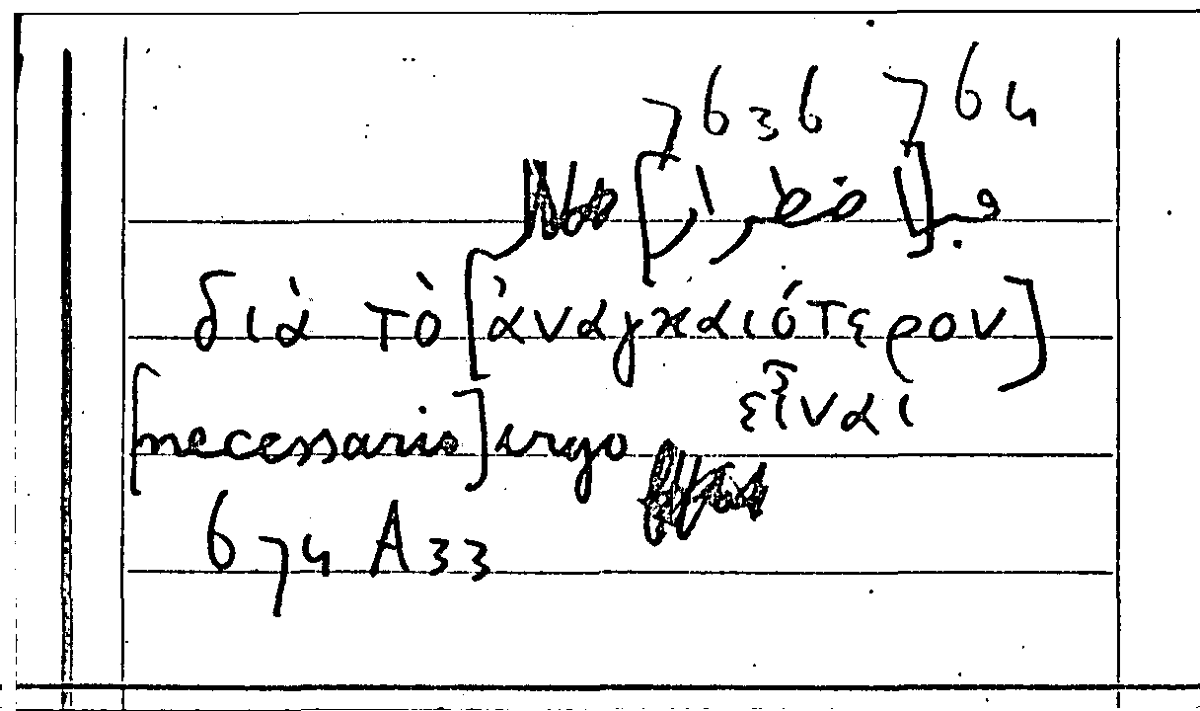 7636 764
فبا[ضطرار]
διὰ τὸ [ἀναγκαιότερον]
εἶναι
[necessario] ergo
674 A33